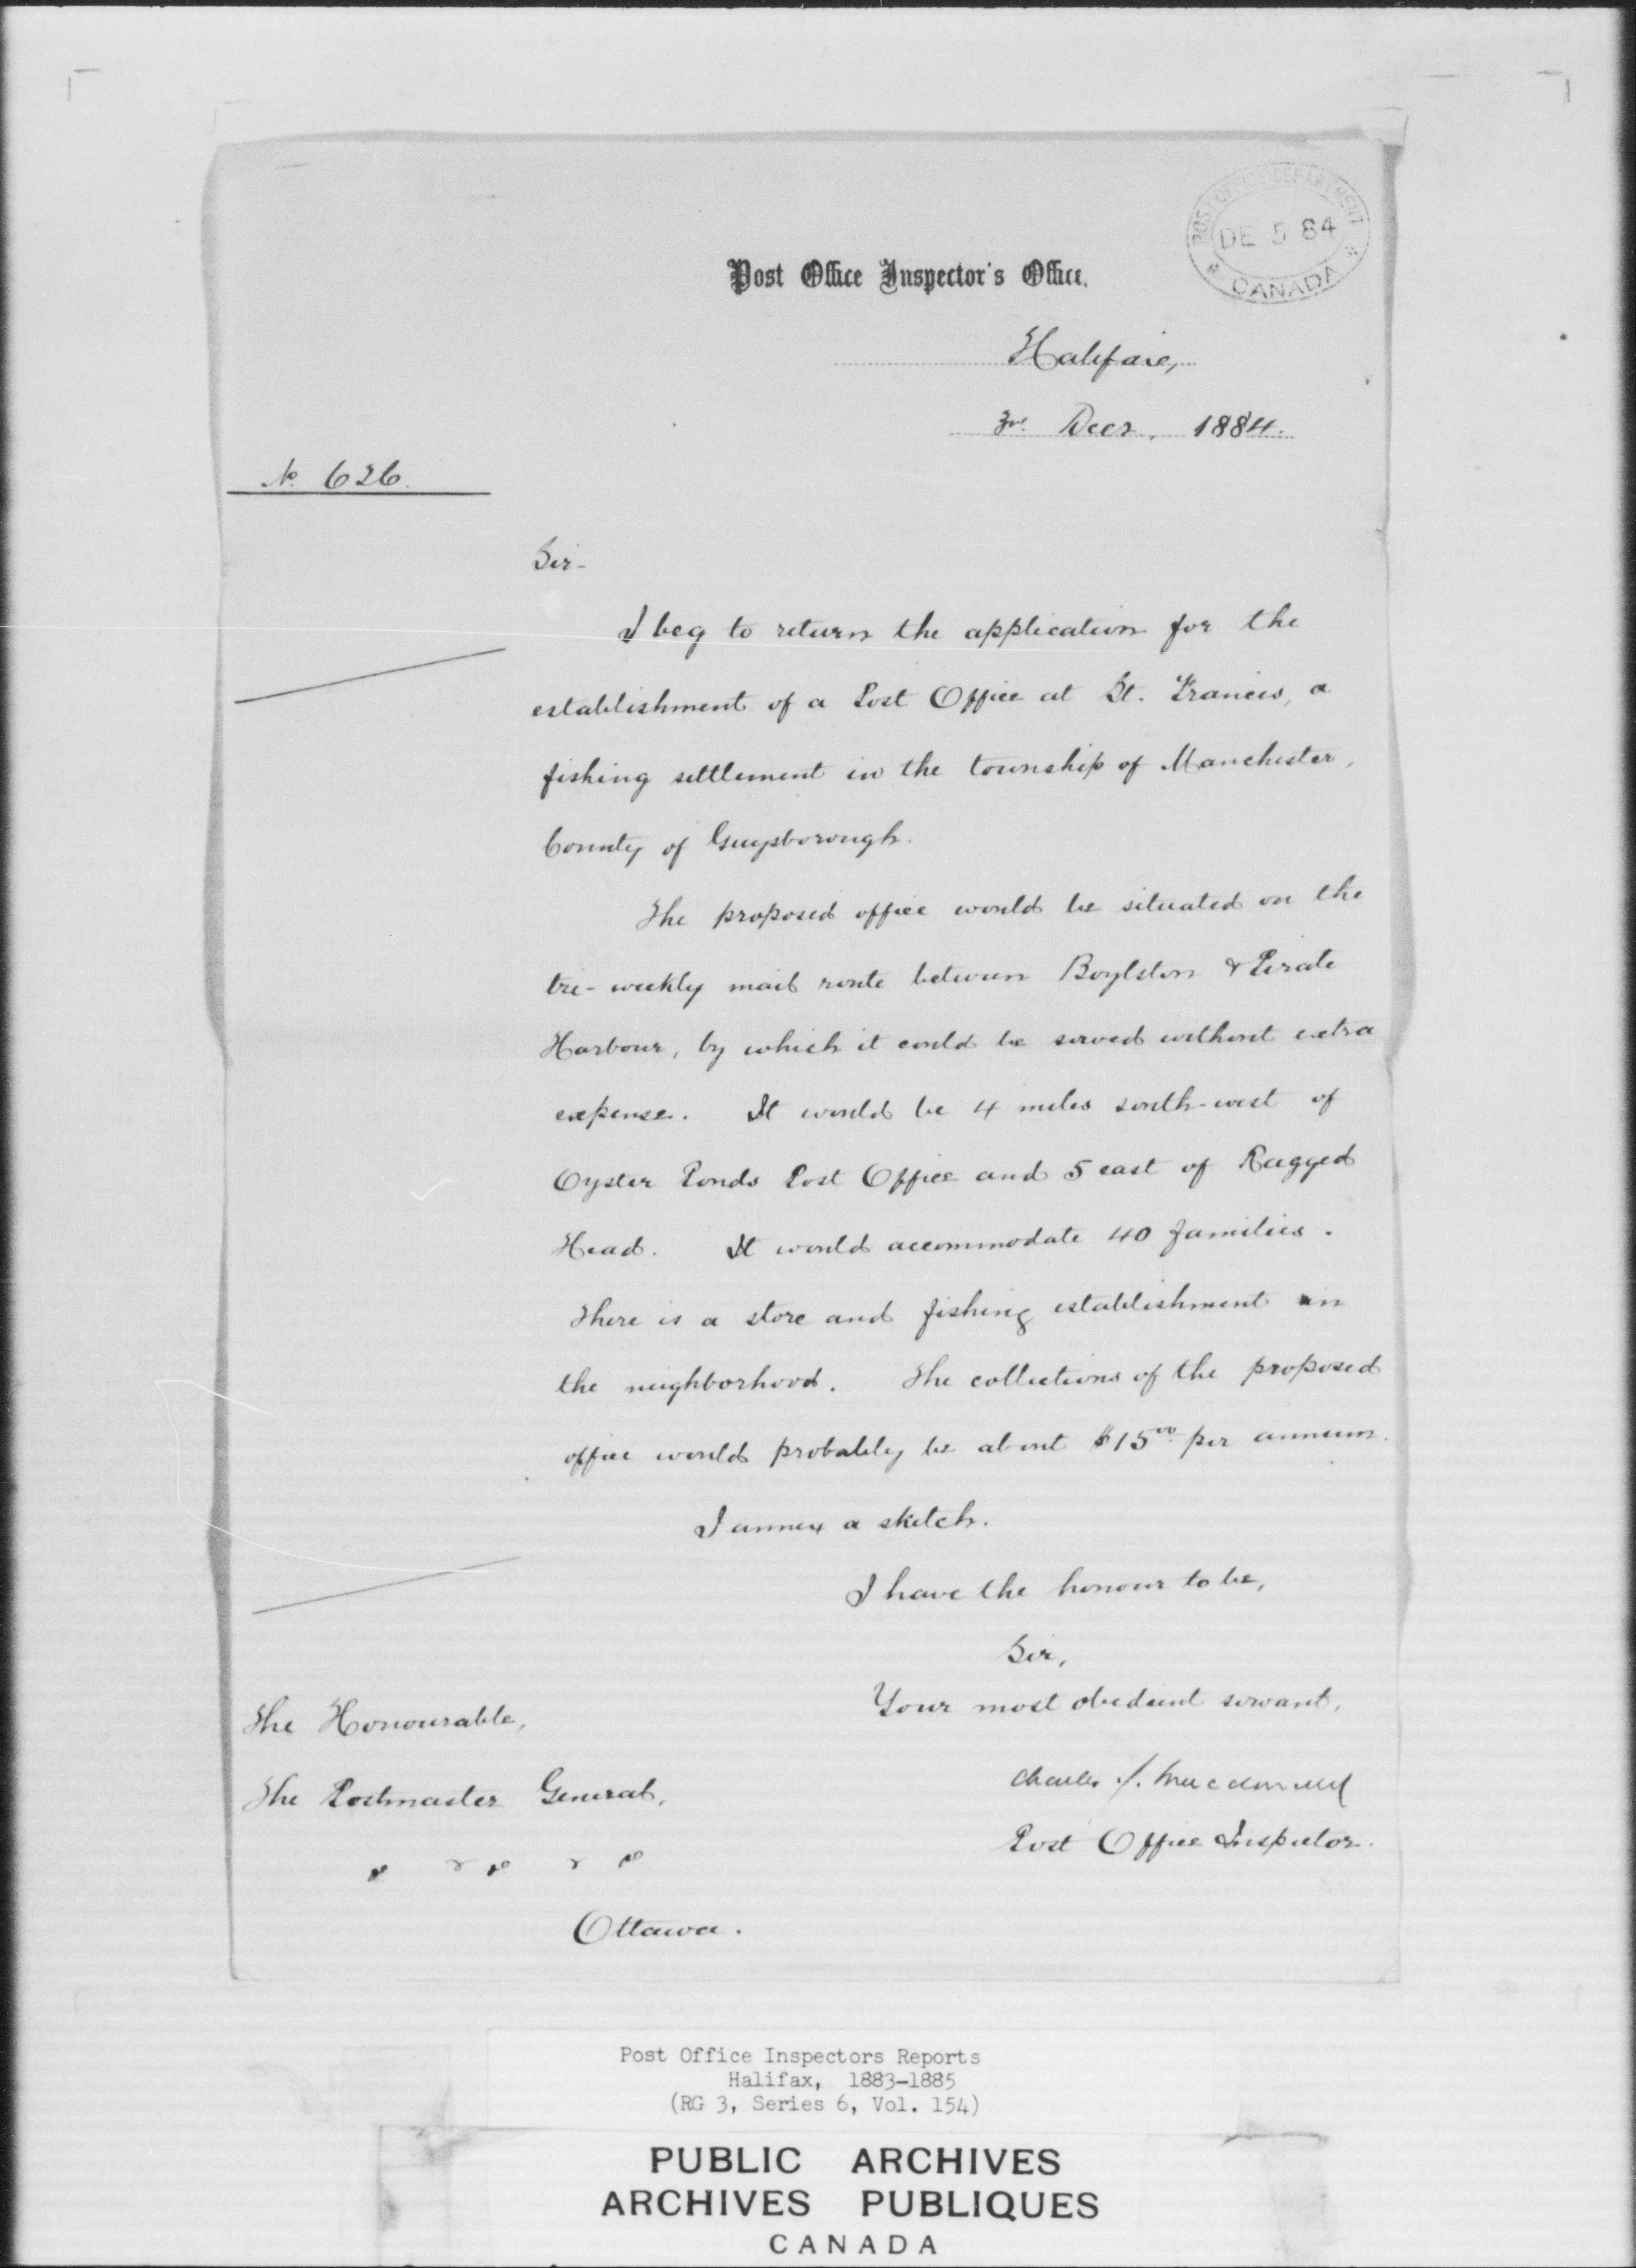 POST OFFICE DEPARTMENT
DE 5 84
CANADA
Post Office Inspector's Office.
Halifax,
3rd Decr. 1884.
No. 626.
Sir-
I beg to return the application for the
establishment of a Post Office at St. Francis, a
fishing settlement in the township of Manchester,
County of Guysborough.
The proposed office would be situated on the
tri-weekly mail route between Boylston & Pirate
Harbour, by which it could be served without extra
expense. It would be 4 miles south-west of
Oyster Ponds Post Office and 5 east of Ragged
Head. It would accommodate 40 families.
There is a store and fishing establishment in
the neighborhood. The collections of the proposed
office would probably be about $15.00 per annum.
I annex a sketch.
I have the honour to be,
Sir,
Your most obedient servant,
Charles J. Macdonald
Post Office Inspector.
The Honourable,
The Postmaster General,
Ottawa.
Post Office Inspectors Reports
Halifax, 1883-1885
(RG 3, Series 6, Vol. 154)
PUBLIC ARCHIVES
ARCHIVES PUBLIQUES
CANADA